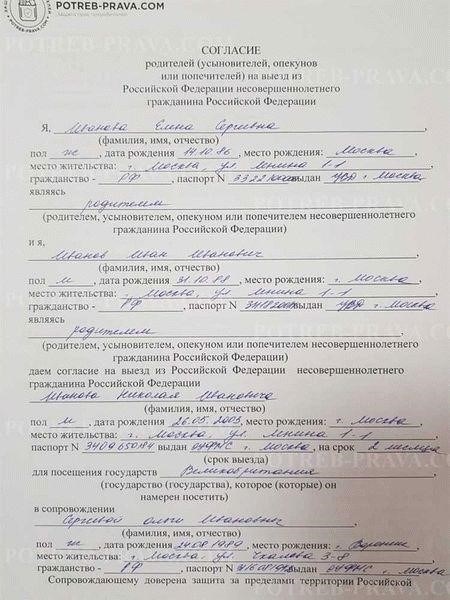 POTREB-PRAVA.COM
СОГЛАСИЕ
родителей (усыновителей, опекунов
или попечителей) на выезд из
Российской Федерации несовершеннолетнего
гражданина Российской Федерации
Я, Иванова Елена Сергеевна,
(фамилия, имя, отчество)
пол ж, дата рождения 14.10.86, место рождения: Москва,
место жительства: г. Москва, ул. Ленина 1-1,
гражданство - РФ, паспорт N выдан УВД г. Москва
являясь
родителем
(родителем, усыновителем, опекуном или попечителем несовершеннолетнего
гражданина Российской Федерации)
и я,
Иванов Иван Иванович,
(фамилия, имя, отчество)
пол м, дата рождения 31.10.88, место рождения: г. Москва,
место жительства: г. Москва, ул. Ленина 1-1,
гражданство - РФ, паспорт N выдан УВД г. Москва
являясь
родителем
(родителем, усыновителем, опекуном или попечителем несовершеннолетнего
гражданина Российской Федерации)
даем согласие на выезд из Российской Федерации несовершеннолетнего
гражданина Российской Федерации
Иванова Николая Ивановича
(фамилия, имя, отчество)
пол м, дата рождения 26.05.2005, место рождения: г. Москва,
место жительства: г. Москва, ул. Ленина 1-1,
паспорт N выдан ОУФМС г. Москва, на срок 2 месяца
(срок выезда)
для посещения государств Великобритания
(государство (государства), которое (которые) он
намерен посетить)
в сопровождении
Сергеевой Ольги Ивановны,
(фамилия, имя, отчество)
пол ж, дата рождения 24.08.1989, место рождения: г. Воронеж,
место жительства: г. Москва, ул. Чкалова 3-8
гражданство - РФ, паспорт N выдан ОУФМС г. Москва
Сопровождающему доверена защита за пределами территории Российской